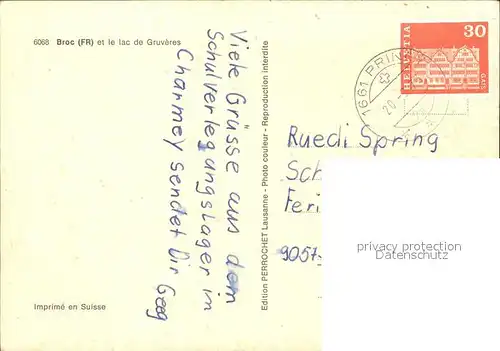 6068 Broc (FR) et le lac de Gruyères
Viele Grüsse aus dem
Schulverlegungslager in
Charmey sendet Dir Georg
Edition PERROCHET Lausanne - Photo couleur - Reproduction interdite
Imprimé en Suisse
HELVETIA
30
GAIS
1661 PRIN
20
Ruedi Spring
Sch
Feri
9057-
privacy protection
watermark